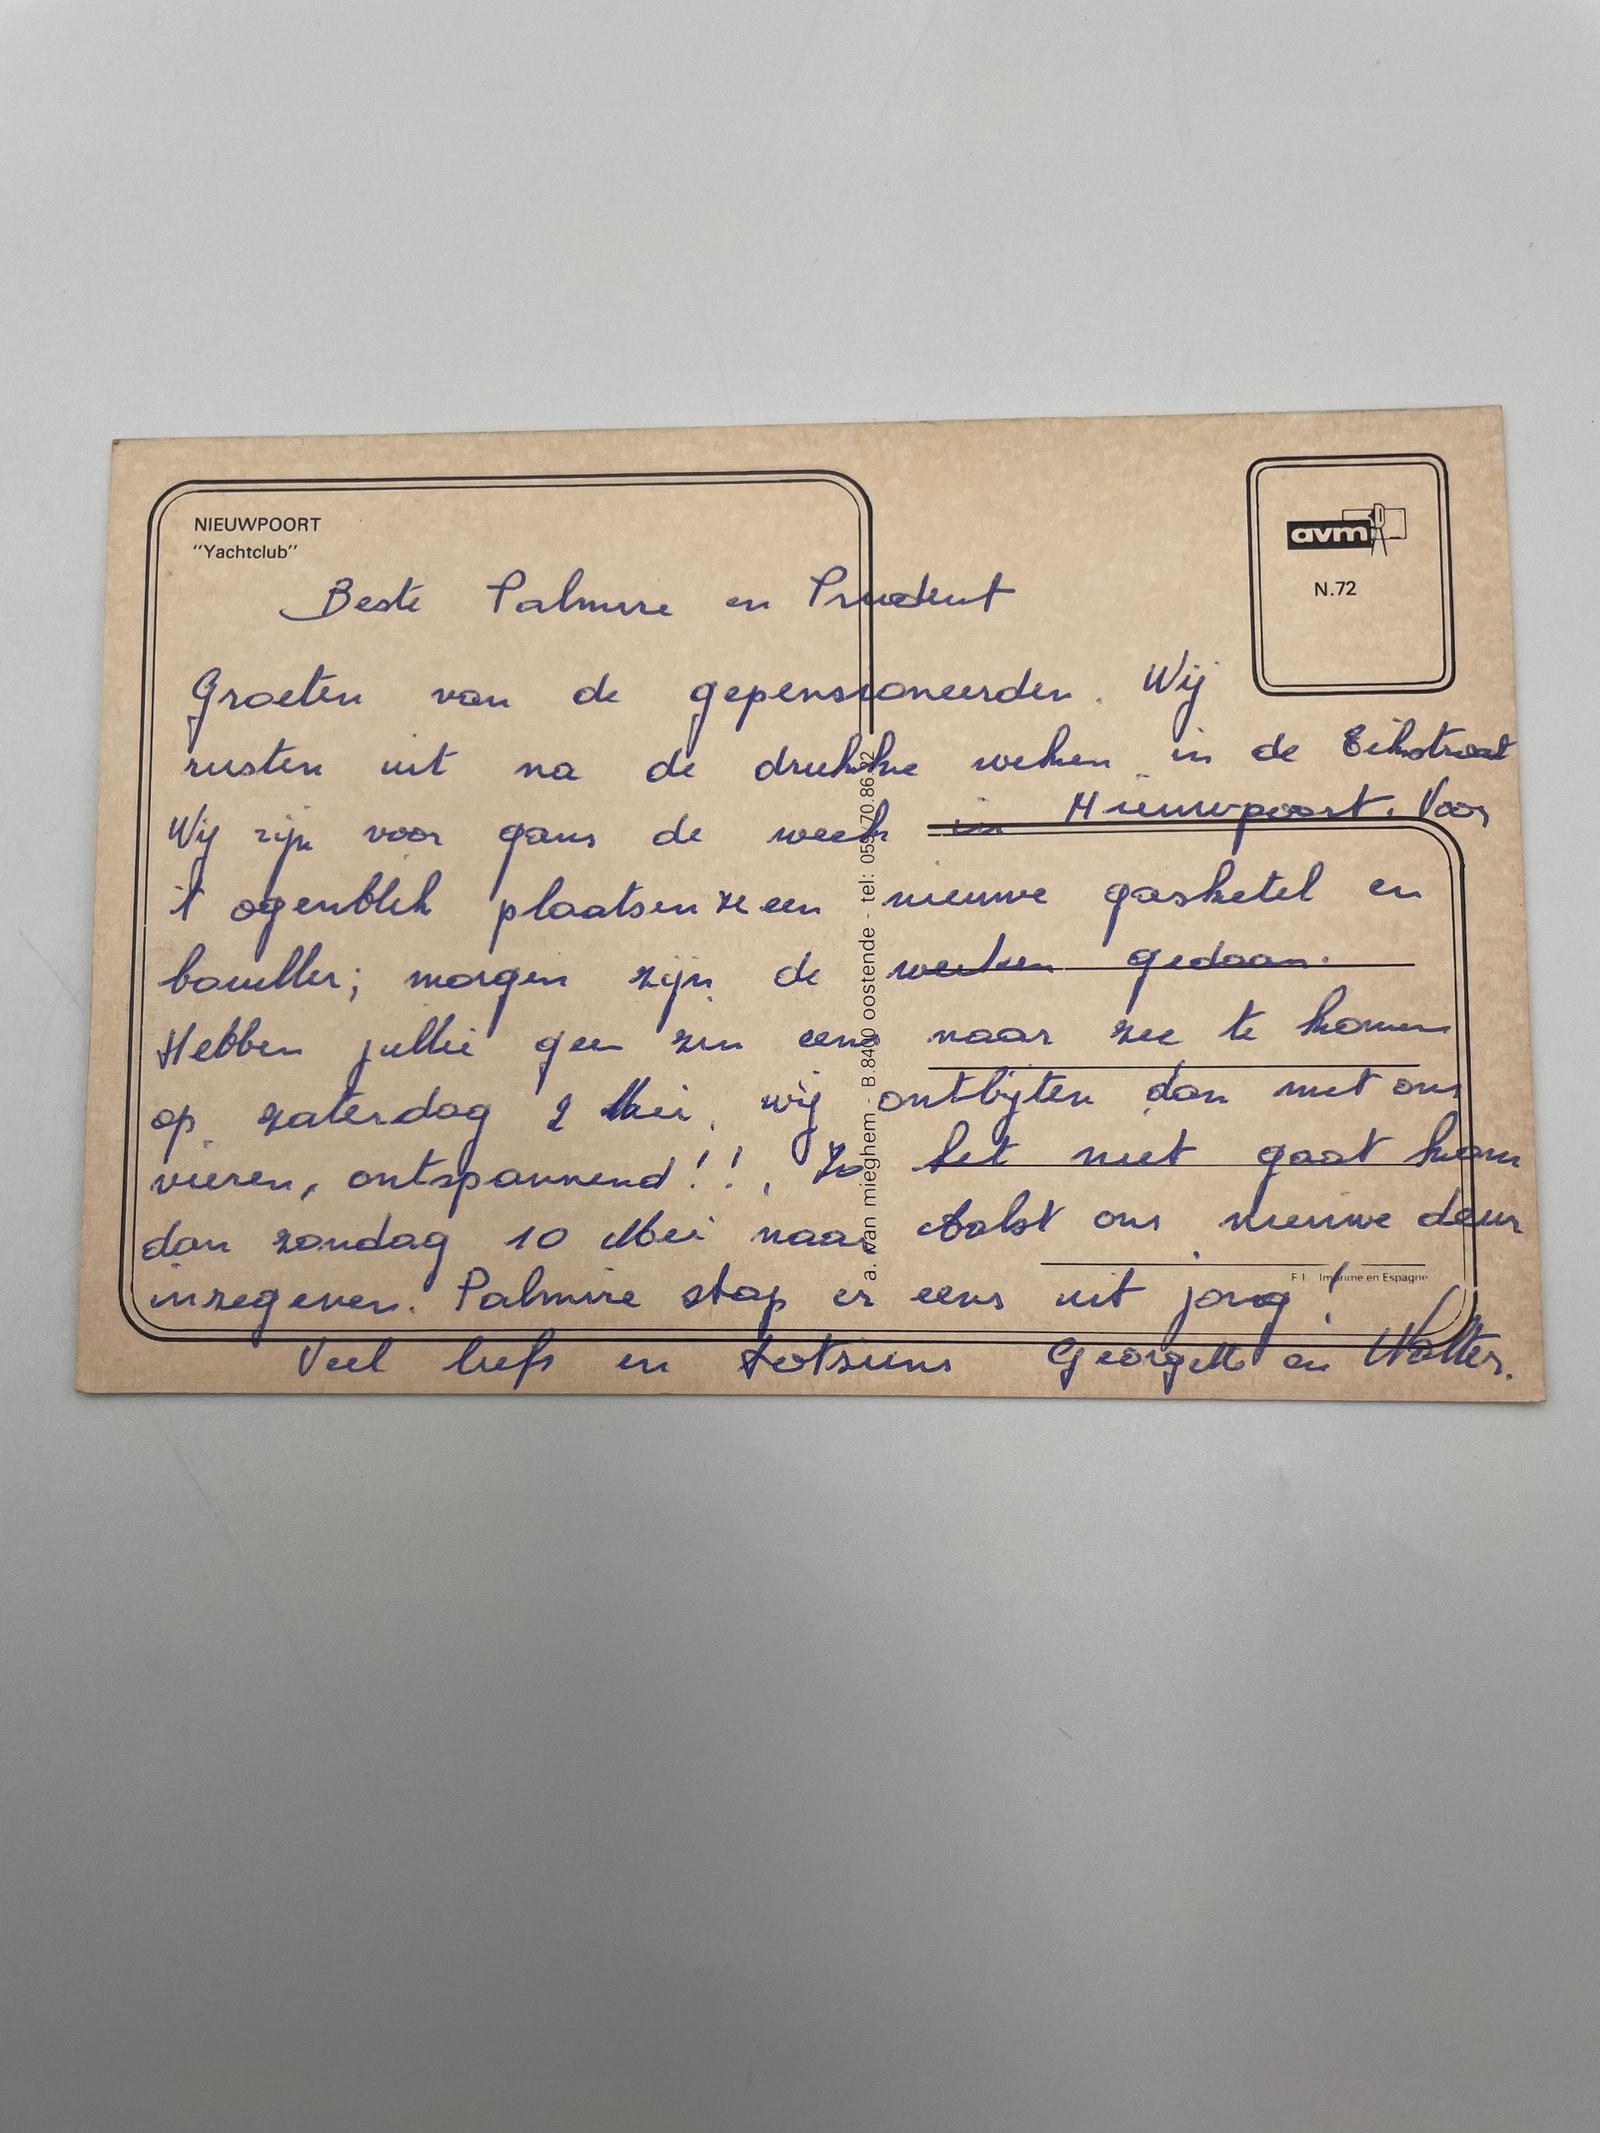 NIEUWPOORT
"Yachtclub"
avm
N.72
Beste Palmire en Prudent
Groeten van de gepensioneerden. Wij
rusten uit na de drukke weken in de Eikstraat
Wij zijn voor gans de week in Nieuwpoort. Voor
't ogenblik plaatsen ze een nieuwe gasketel en
bouiller; morgen zijn de werken gedaan.
Hebben jullie geen zin eens naar zee te komen
op zaterdag 2 Mei, wij ontbijten dan met ons
vieren, ontspannend!!, Zo het niet gaat kom
dan zondag 10 Mei naar Aalst ons nieuwe deur
inzegenen. Palmire stap er eens uit jong!
Veel liefs en totsiens Georgette en Walter.
a. van mieghem - B.8400 oostende - tel: 059/70.86.02
F I. Imprime en Espagne